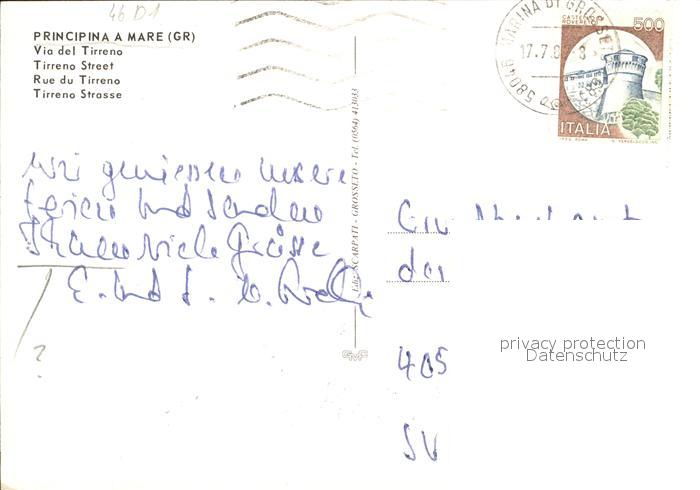 46 D1
PRINCIPINA A MARE (GR)
Via del Tirreno
Tirreno Street
Rue du Tirreno
Tirreno Strasse
58046 MARINA DI GROSSETO
17.7.
CASTELLO
ROVERETO
500
ITALIA
Ediz. SCARPATI - GROSSETO - Tel. (0564) 413033
Wir geniessen unsere
Ferien und senden
Ihnen viele Grüsse
E. und
?
405
privacy protection
Datenschutz